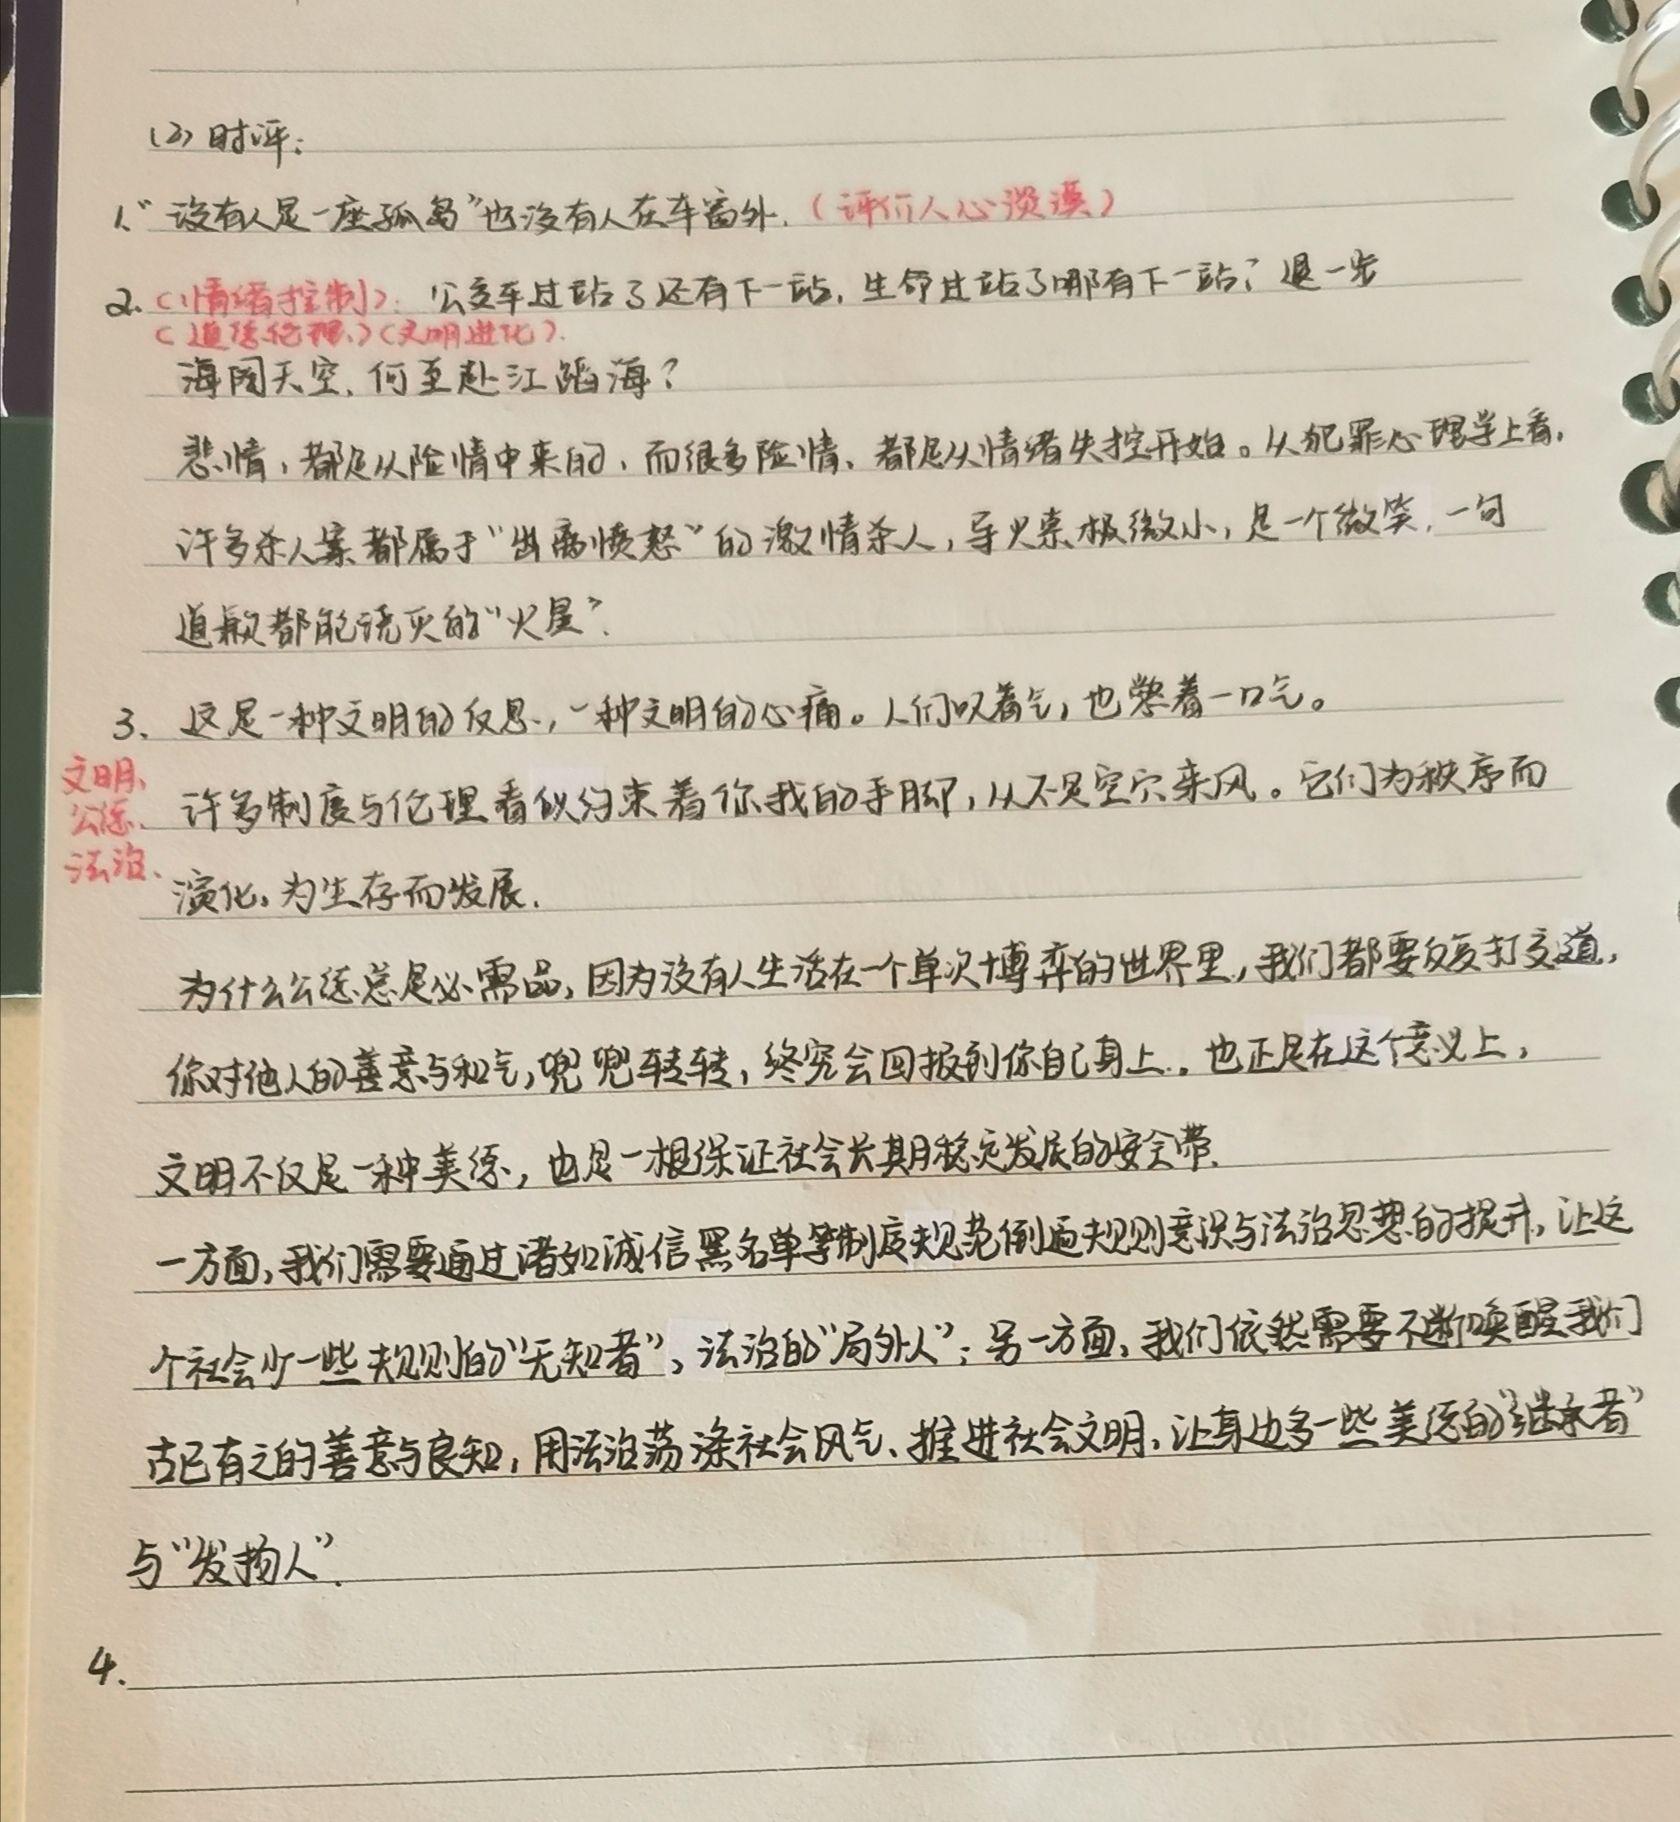 (2) 时评:
1.“没有人是一座孤岛”也没有人在车窗外.(评价人心淡漠)
2.(情绪控制): 公交车过站了还有下一站,生命过站了哪有下一站?退一步
(道德伦理)(文明进化).
海阔天空,何至赴江蹈海?
悲情,都是从险情中来的,而很多险情、都是从情绪失控开始。从犯罪心理学上看,
许多杀人案都属于“出离愤怒”的激情杀人,导火索极微小,是一个微笑,一句
道歉都能浇灭的“火星”.
3、这是一种文明的反思,一种文明的心痛。人们叹着气,也憋着一口气。
文明、
公德、
法治、
许多制度与伦理看似约束着你我的手脚,从不是空穴来风。它们为秩序而
演化,为生存而发展.
为什么公德总是必需品,因为没有人生活在一个单次博弈的世界里,我们都要反复打交道,
你对他人的善意与和气,兜兜转转,终究会回报到你自己身上.。也正是在这个意义上,
文明不仅是一种美德,也是一根保证社会长期稳定发展的安全带.
一方面,我们需要通过诸如诚信黑名单等制度规范倒逼规则意识与法治思想的提升,让这
个社会少一些规则的“无知者”、法治的“局外人”;另一方面,我们依然需要不断唤醒我们
古已有之的善意与良知,用法治荡涤社会风气、推进社会文明,让身边多一些美德的“继承者”
与“发扬人”.
4.